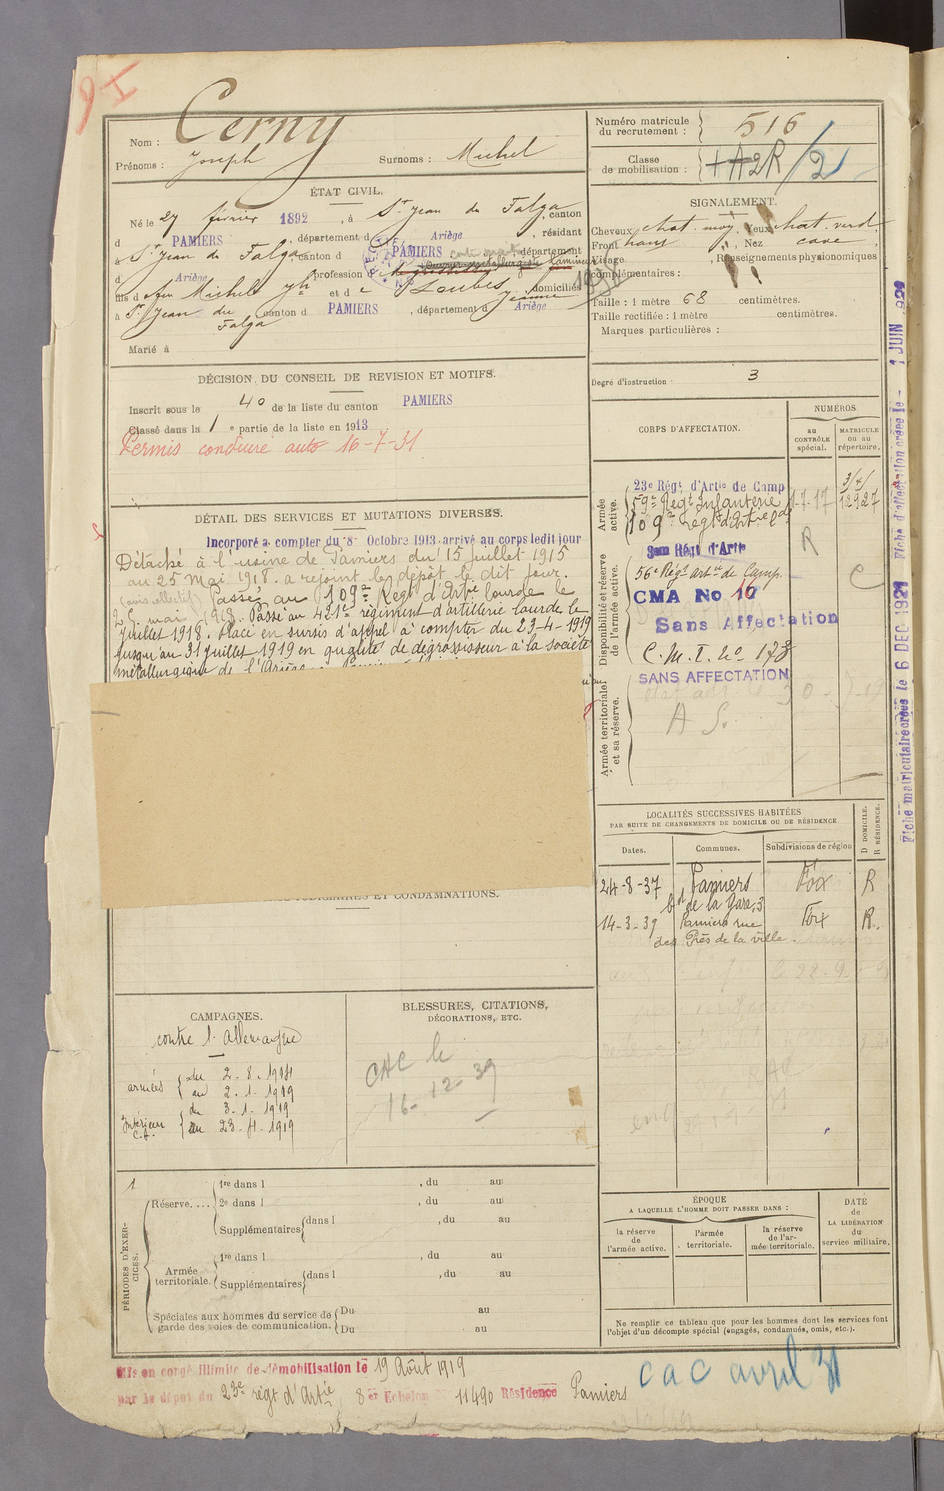 Nom : Cerny
Prénoms : Joseph Surnoms : Michel
ÉTAT CIVIL.
Né le 27 février 1892, à St Jean du Falga, canton
d PAMIERS, département d Ariège, résidant
à St Jean du Falga, canton d PAMIERS, département
d Ariège, profession d
fils d feu Michel et d Loubes Jeanne domiciliés
à St Jean du Falga, canton d PAMIERS, département d Ariège
Marié à
DÉCISION DU CONSEIL DE REVISION ET MOTIFS.
Inscrit sous le no 40 de la liste du canton PAMIERS
Classé dans la 1e partie de la liste en 1913
Permis conduire auto 16-7-31
DÉTAIL DES SERVICES ET MUTATIONS DIVERSES.
Incorporé à compter du 8 Octobre 1913 arrivé au corps ledit jour
Détaché à l'usine de Pamiers du 15 juillet 1915
au 25 mai 1918. a rejoint le dépôt le dit jour.
(avis effectif) Passé au 109e Régt d'Artie lourde le
25 mai 1918. Passé au 421e régiment d'artillerie lourde le
juillet 1918. Placé en sursis d'appel à compter du 23-4-1919
jusqu'au 31 juillet 1919 en qualité de dégrossisseur à la société
métallurgique de l'Ariège
JUDICIAIRES ET CONDAMNATIONS.
CAMPAGNES.
contre l'Allemagne
armées du 2-8-1914
au 2-1-1919
Intérieur du 3-1-1919
C.S. au 23-4-1919
BLESSURES, CITATIONS,
DÉCORATIONS, ETC.
CAC le
16-12-39
1
PÉRIODES D'EXERCICES.
Réserve....
1re dans l , du au
2e dans l , du au
Supplémentaires dans l , du au
Armée territoriale.
1re dans l , du au
Supplémentaires dans l , du au
Spéciales aux hommes du service de garde des voies de communication.
Du au
Du au
Mis en congé illimité de démobilisation le 19 Août 1919
par le dépôt du 23e régt d'Artie 8er Echelon 11490 Résidence Pamiers
Numéro matricule du recrutement : 516
Classe de mobilisation : +A2R/2
SIGNALEMENT.
Cheveux chat. moy. Yeux chat. verd
Front haut, Nez cave,
Visage, Renseignements physionomiques
complémentaires :
Taille : 1 mètre 68 centimètres.
Taille rectifiée : 1 mètre centimètres.
Marques particulières :
Degré d'instruction : 3
CORPS D'AFFECTATION.
NUMÉROS
au CONTRÔLE spécial.
MATRICULE ou au répertoire.
Armée active.
23e Régt d'Artie de Camp
59e Régt Infanterie 1-7-17 12927
109e Régt d'Artie Lde
Disponibilité et réserve de l'armée active.
3am Régt d'Artie R
56e Régt artie de Camp.
CMA No 16
Sans Affectation
C.M.I. No 173
SANS AFFECTATION
Armée territoriale et sa réserve.
A S.
LOCALITÉS SUCCESSIVES HABITÉES
PAR SUITE DE CHANGEMENTS DE DOMICILE OU DE RÉSIDENCE
Dates. Communes. Subdivisions de région D DOMICILE. R RÉSIDENCE.
24-8-37 Pamiers Foix R
bd de la Gare, 3
14-3-39 Pamiers rue Foix R.
des Prés de la ville.
ÉPOQUE
A LAQUELLE L'HOMME DOIT PASSER DANS :
la réserve de l'armée active.
l'armée territoriale.
la réserve de l'armée territoriale.
DATE
de
LA LIBÉRATION
du
service militaire.
Ne remplir ce tableau que pour les hommes dont les services font
l'objet d'un décompte spécial (engagés, condamnés, omis, etc.).
cac avril 31
Fiche matriculaire créée le 6 DEC 1921 Fiche d'affectation créée le - 1 JUIN